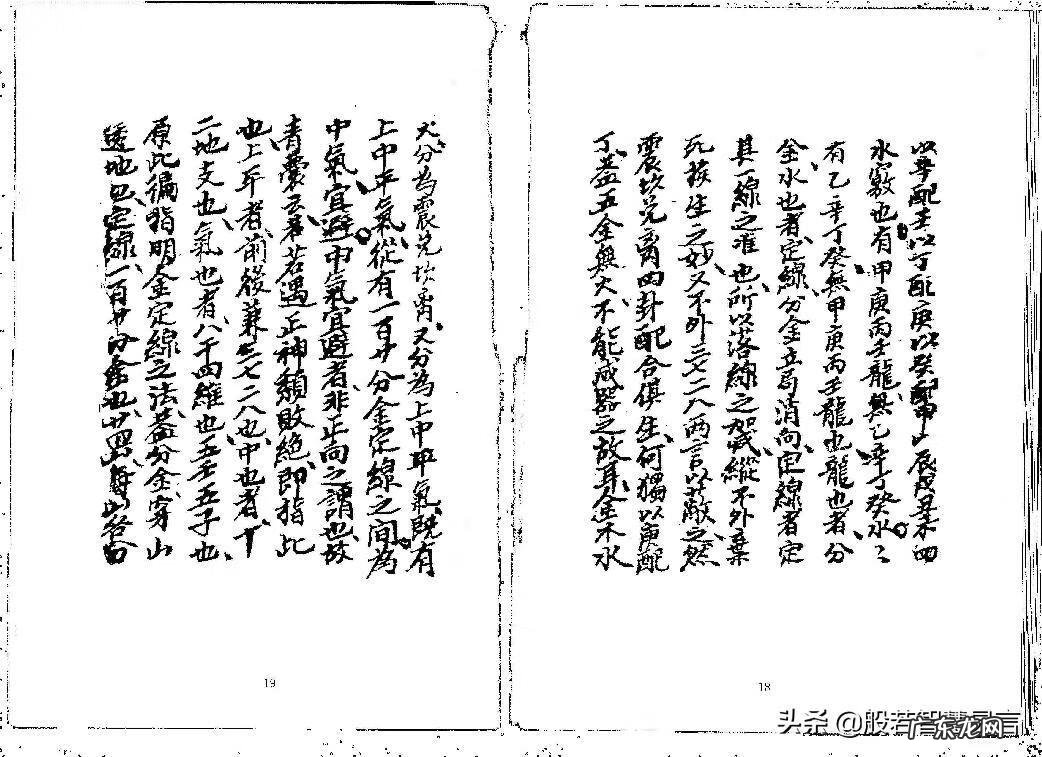 以辛配壬以丁配庚以癸配甲山辰戌丑未四
水竅也有甲庚丙壬龍無乙辛丁癸水水
有乙辛丁癸無甲庚丙壬龍也龍也者分
金水也者定線分金立局消向定線者定
其一線之准也所以落線之挨縱不外棄
死挨生之妙又不外三七二八兩言以蔽之然
震坎兌离四卦配合俱生何獨以庚配
丁蓋五金無火不能成器之故耳金木水
火分為震兌坎离又分為上中平氣既有
上中平氣從有一百廿分金定線之間為
中氣宜避中氣宜避者非正向之謂也故
青囊云若遇正神顛敗絕即指此
也上平者前後兼三七二八也中也者十
二地支也氣也者八干四維也五壬五子也
原此徧指明金定線之法蓋分金穿山
透地定線一百廿分金也廿四山
19
18
头条 @般若智慧
东龙网